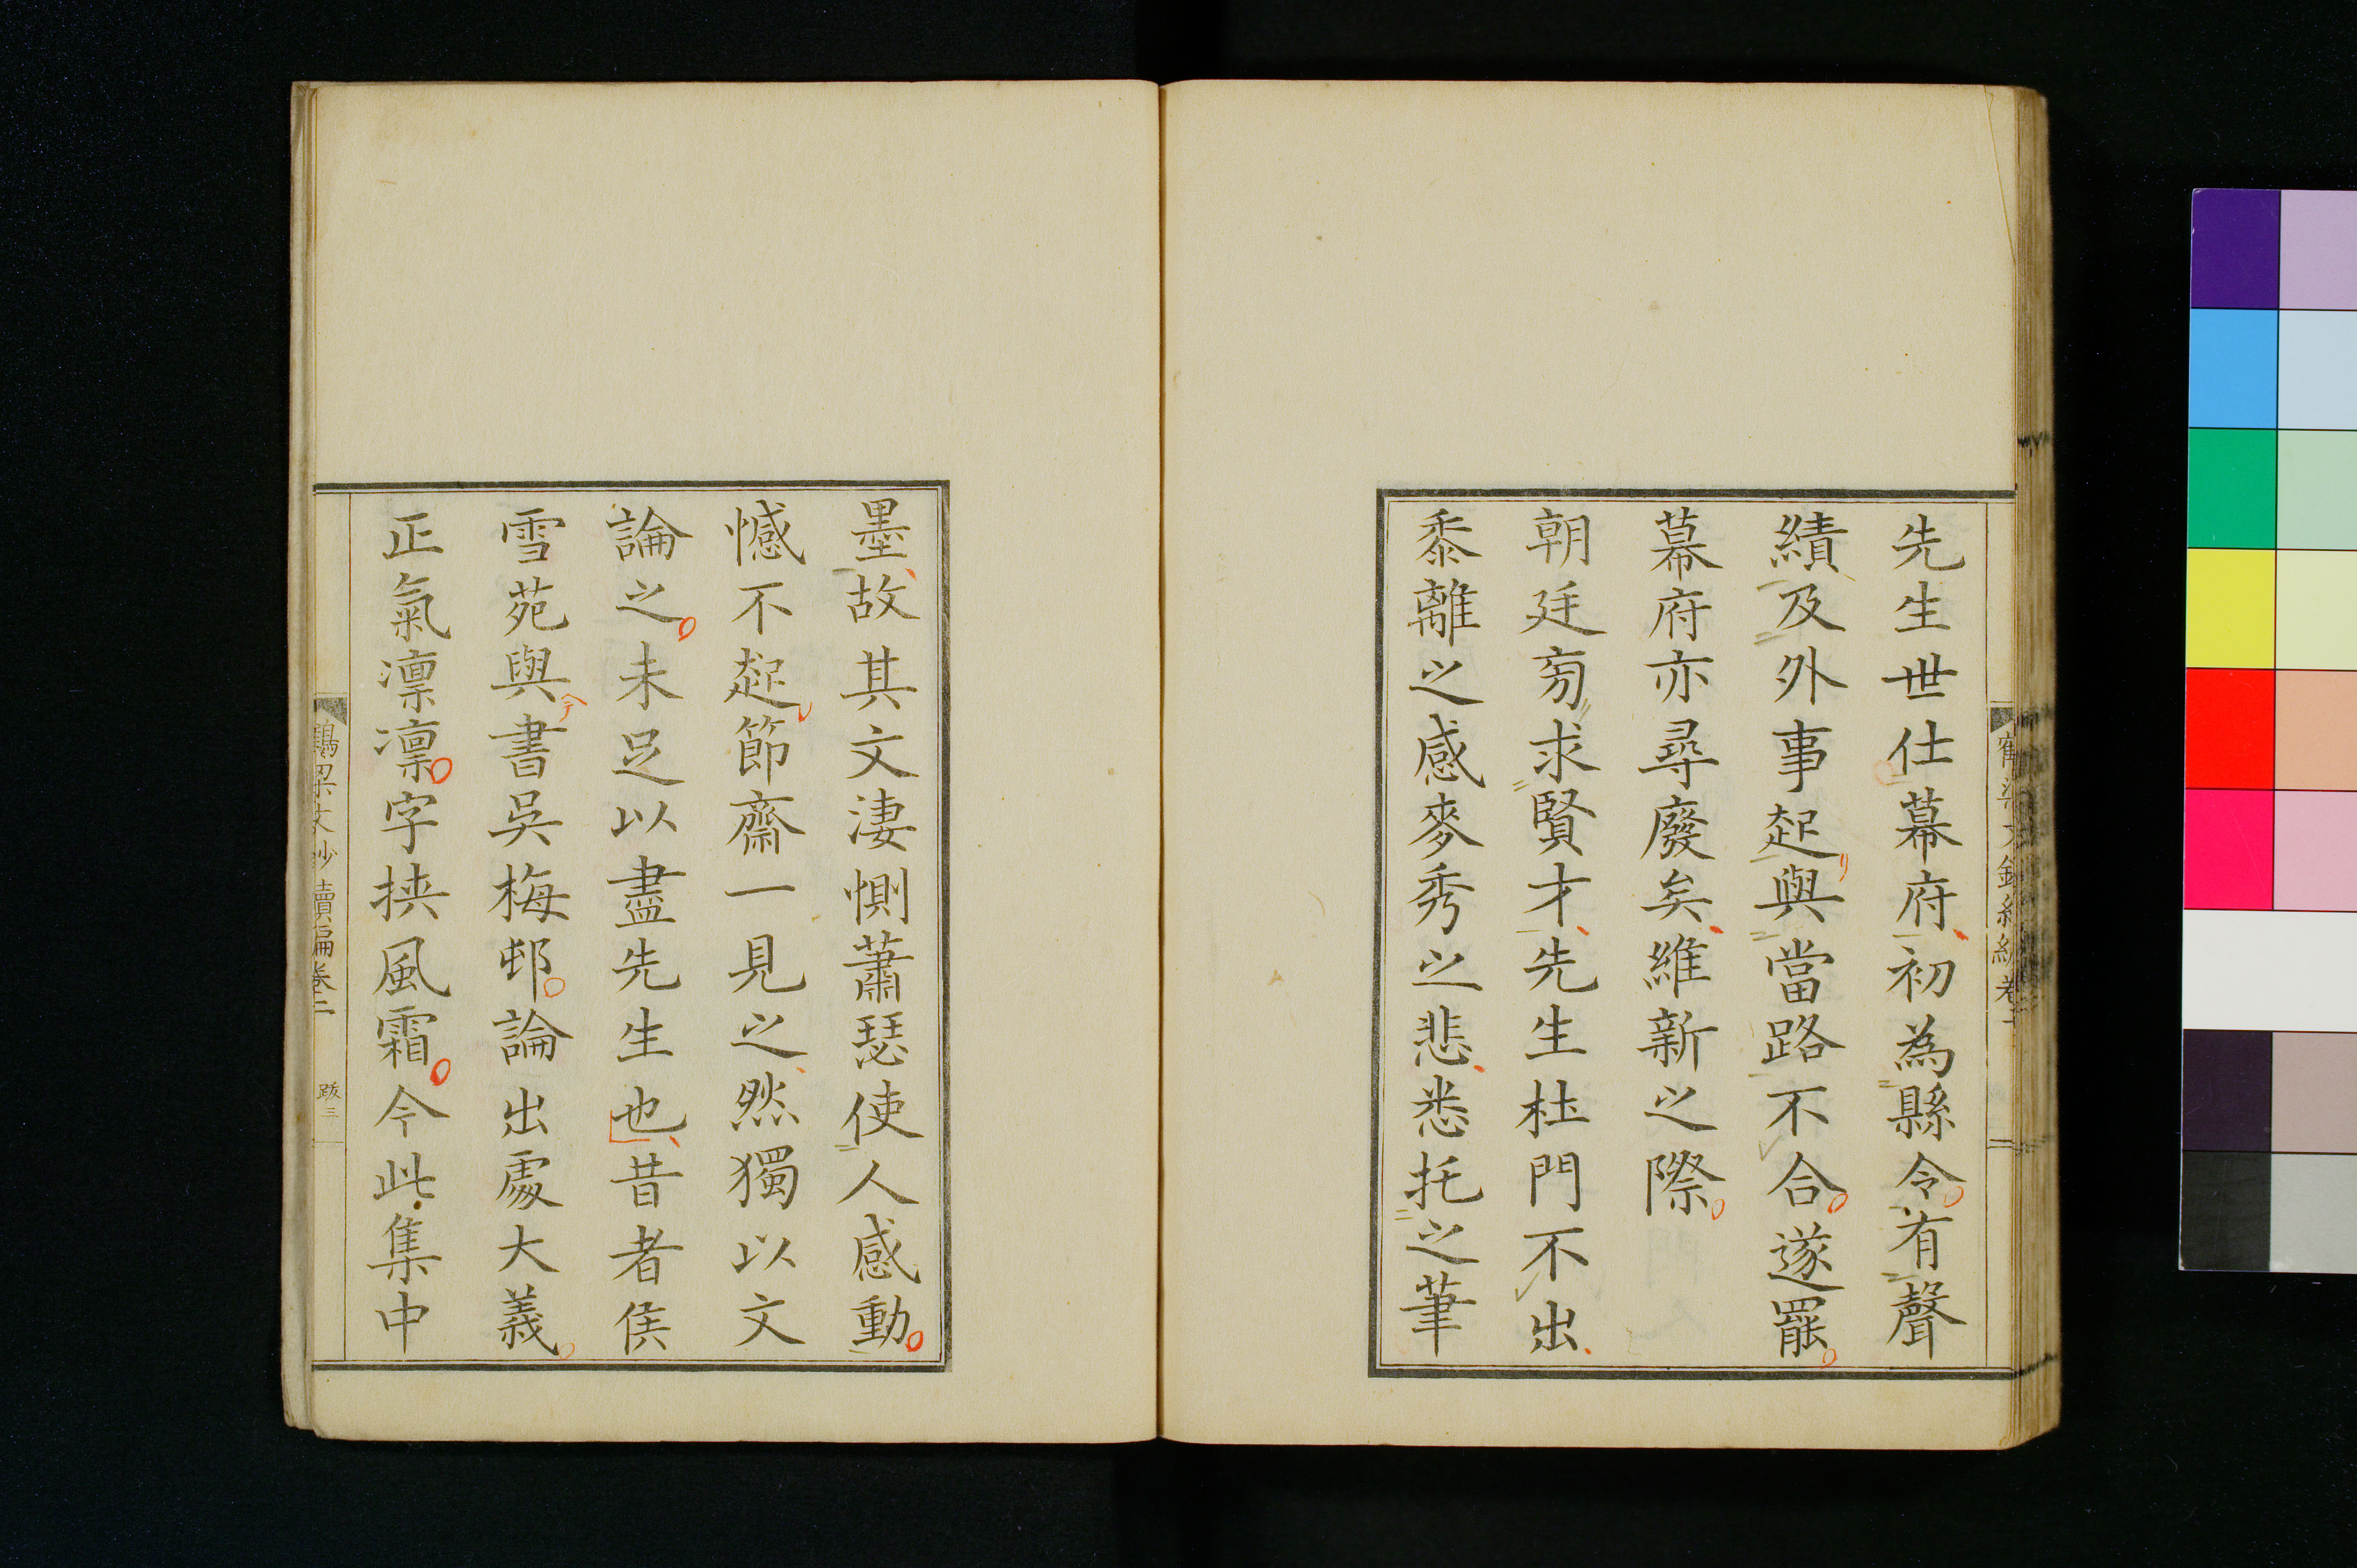 先生世仕幕府初為縣令有聲
績及外事起與當路不合遂罷
幕府亦尋廢矣維新之際
朝廷旁求賢才先生杜門不出
黍離之感麥秀之悲悉托之筆
墨故其文淒惻蕭瑟使人感動
憾不起節齋一見之然獨以文
論之未足以盡先生也昔者侯
雪苑與書吳梅邨論出處大義
正氣凜凜字挾風霜今此集中
鶴梁文鈔續編卷二 跋三